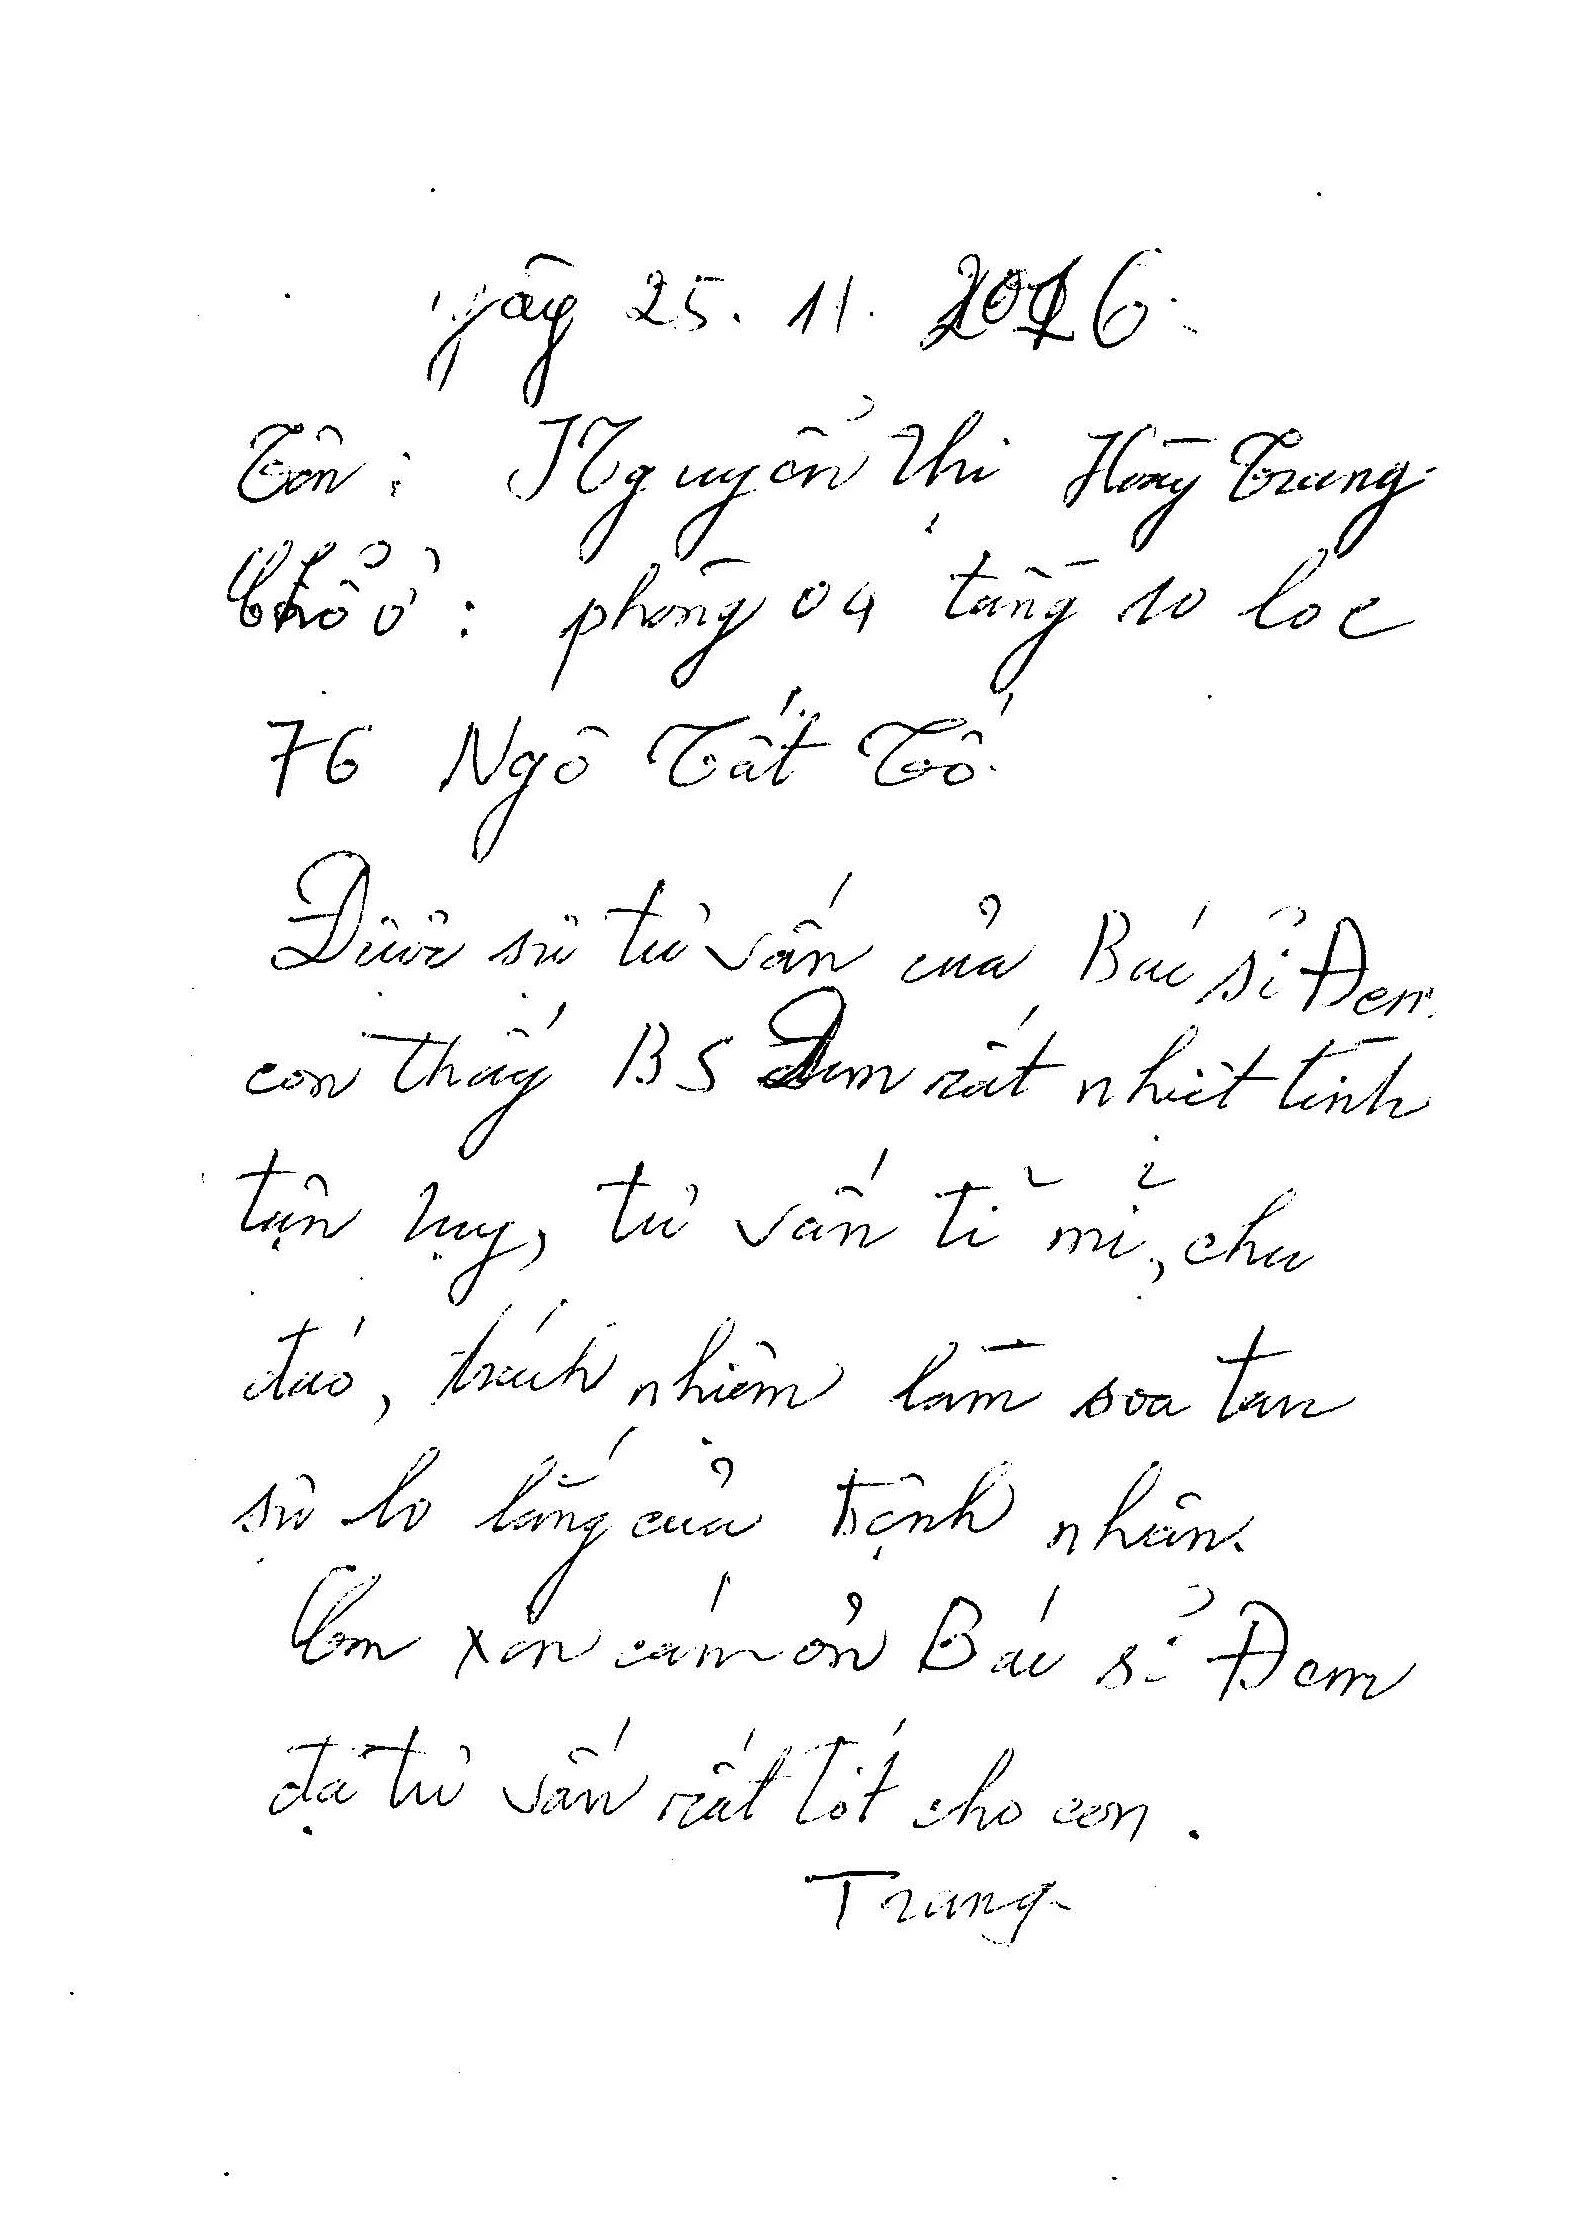 Ngày 25. 11. 2016.
Tên : Nguyễn Thị Hồng Trang
Chổ ở : phòng 04 tầng 10 lô C
76 Ngô Tất Tố.
Được sự tư vấn của Bác sỉ Đem
con thấy BS Đem rất nhiệt tình
tận tụy, tư vấn tỉ mỉ, chu
đáo, trách nhiệm làm xoa tan
sự lo lắng của bệnh nhân.
Con xin cám ơn Bác sỉ Đem
đã tư vấn rất tốt cho con.
Trang